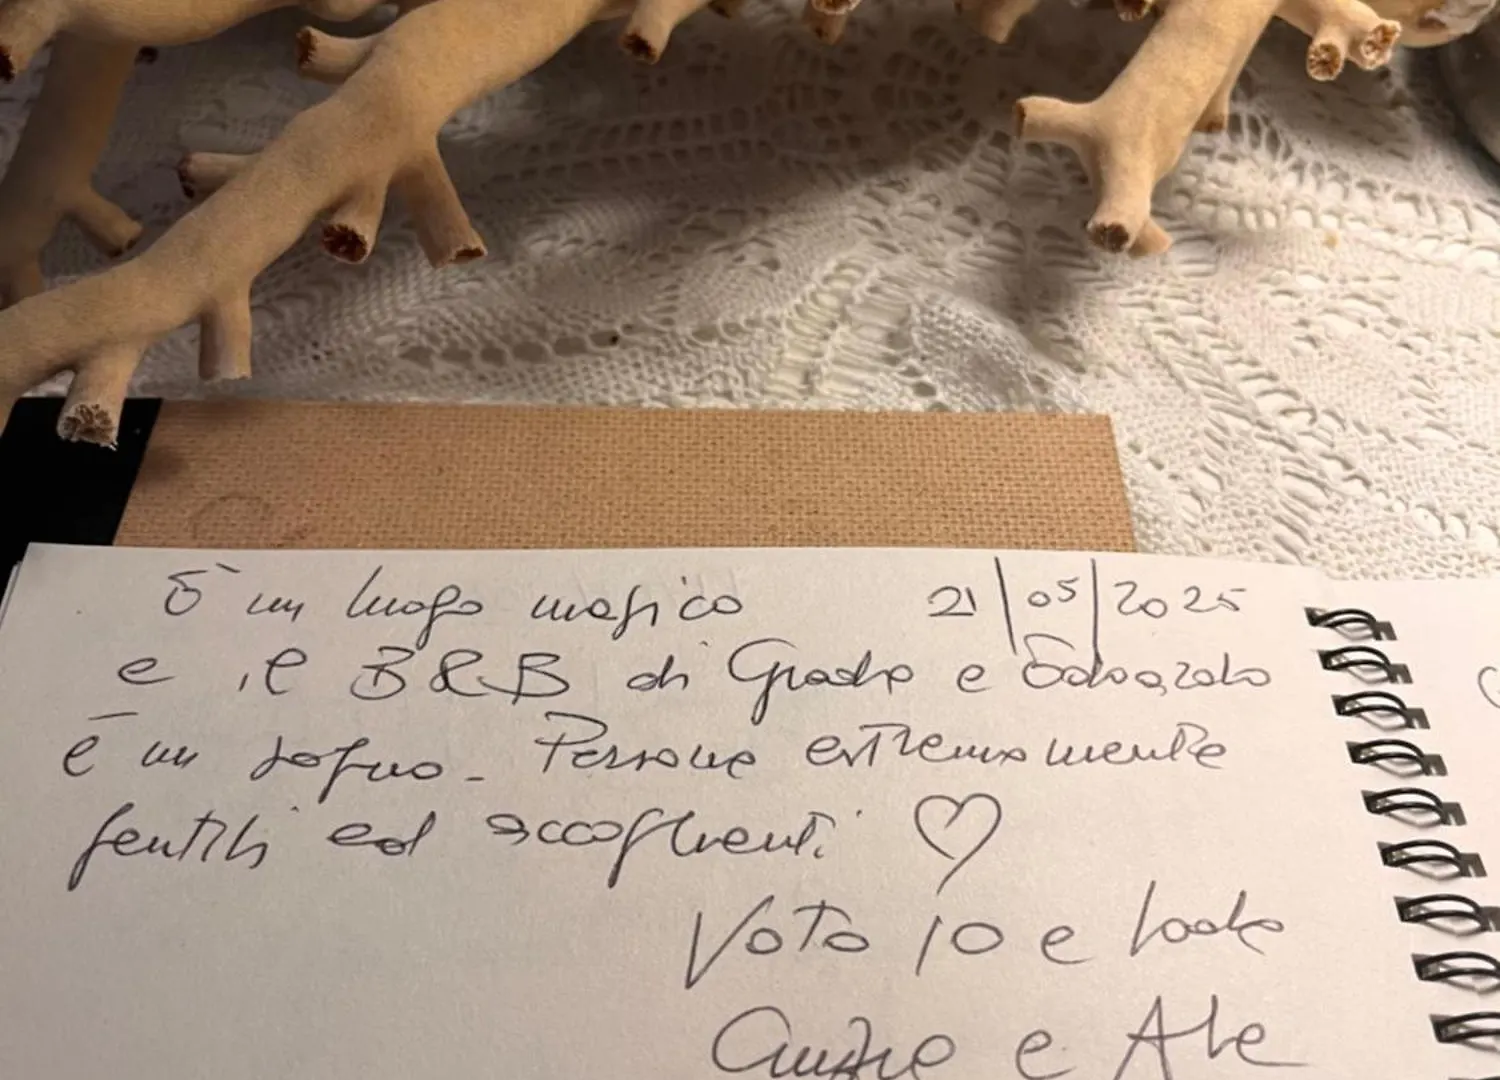 È un luogo magico 21|05|2025
e il B&B di e Edoardo
è un sogno. Persone estremamente
gentili ed accoglienti ♡
Voto 10 e lode
e Ale